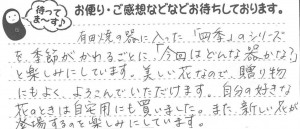 待ってま〜す♪
お便り・ご感想などなどお待ちしております。
有田焼の器に入った、「四季」のシリーズ
を、季節がかわるごとに、「今回はどんな器かな?」
と楽しみにしています。美しい花なので、贈り物
にもよく、よろこんでいただけます。自分の好きな
花のときは自宅用にも買いました。また新しい花が
登場するのを楽しみにしています。